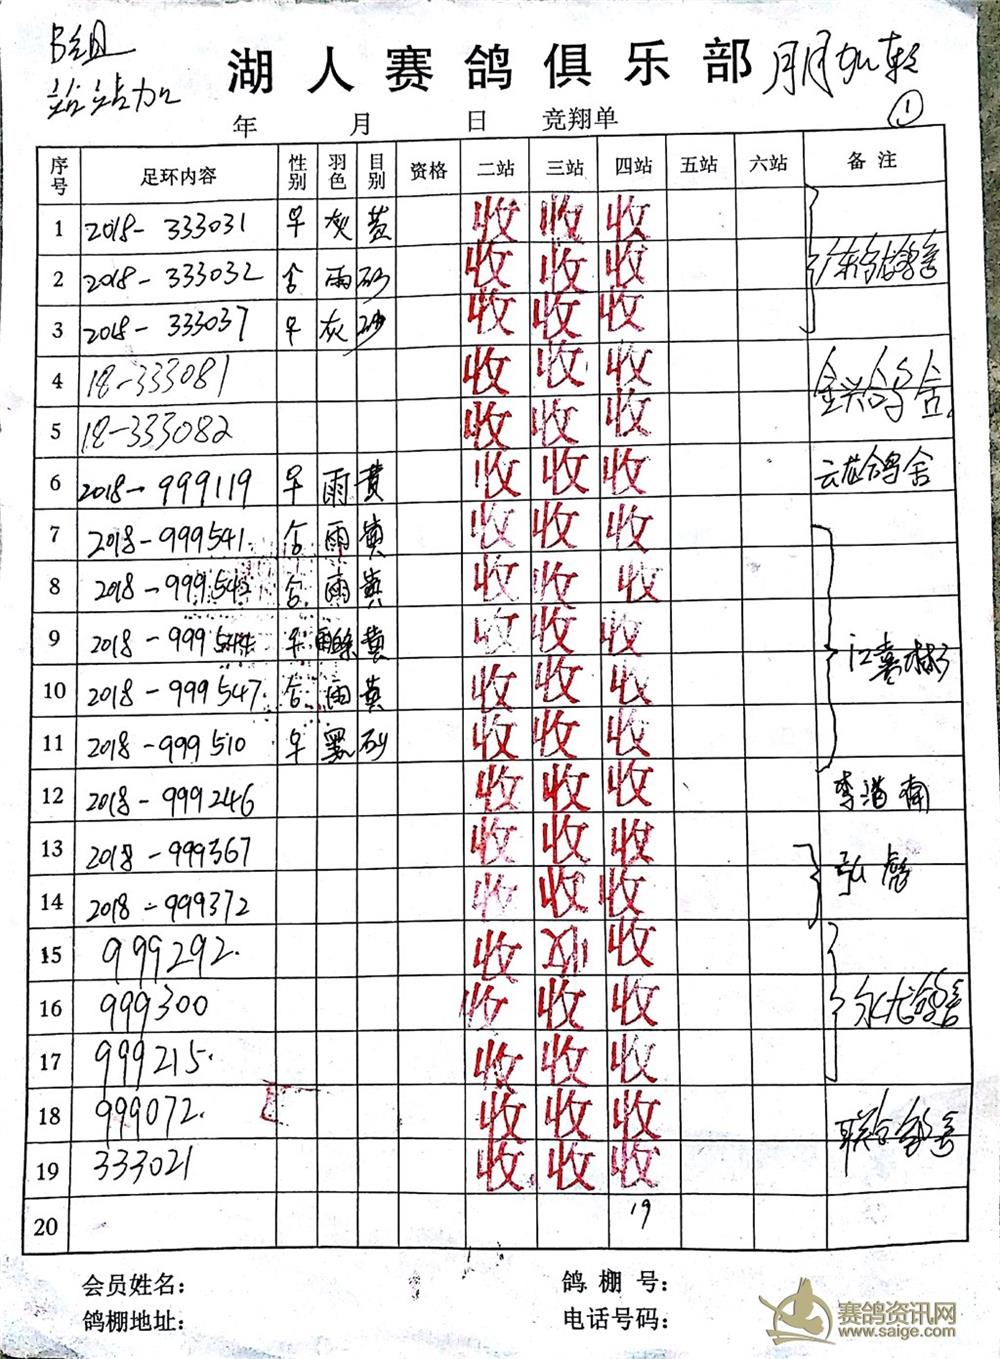 B组
站站加
湖人赛鸽俱乐部
①
年 月 日 竞翔单
序号 足环内容 性别 羽色 目别 资格 二站 三站 四站 五站 六站 备注
1 2018-333031 早 灰 黄 收 收 收
2 2018-333032 合 雨 砂 收 收 收
3 2018-333037 早 灰 砂 收 收 收
4 18-333081 收 收 收 金兴合鸟舍
5 18-333082 收 收 收
6 2018-999119 早 雨 黄 收 收 收 云龙鸽舍
7 2018-999541 合 雨 黄 收 收 收
8 2018-999542 合 雨 黄 收 收 收
9 2018-999544 早 黄 收 收 收 江嘉彬
10 2018-999547 合 雨 黄 收 收 收
11 2018-999510 早 砂 收 收 收
12 2018-999246 收 收 收
13 2018-999367 收 收 收 弘
14 2018-999372 收 收 收
15 999292 收 收 收
16 999300 收 收 收 永龙鸽舍
17 999215 收 收 收
18 999072 收 收 收 联合
19 333021 收 收 收
20 19
会员姓名： 鸽棚号：
鸽棚地址： 电话号码：
赛鸽资讯网
www.saige.com